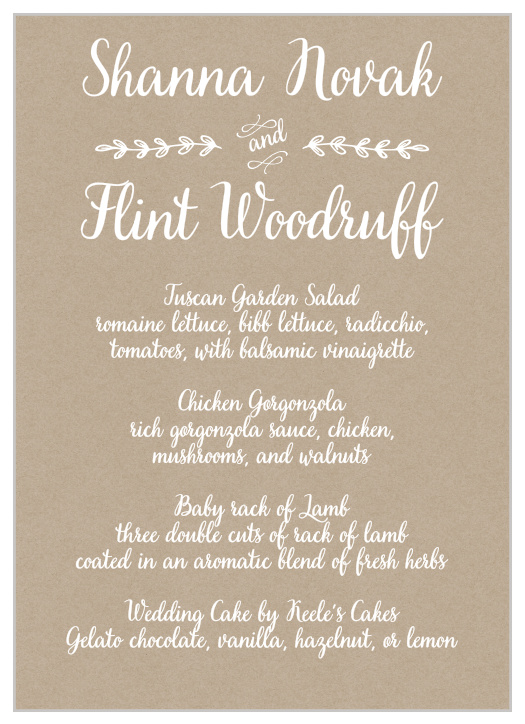 Shanna Novak
and
Flint Woodruff
Tuscan Garden Salad
romaine lettuce, bibb lettuce, radicchio,
tomatoes, with balsamic vinaigrette
Chicken Gorgonzola
rich gorgonzola sauce, chicken,
mushrooms, and walnuts
Baby rack of Lamb
three double cuts of rack of lamb
coated in an aromatic blend of fresh herbs
Wedding Cake by Keele's Cakes
Gelato chocolate, vanilla, hazelnut, or lemon